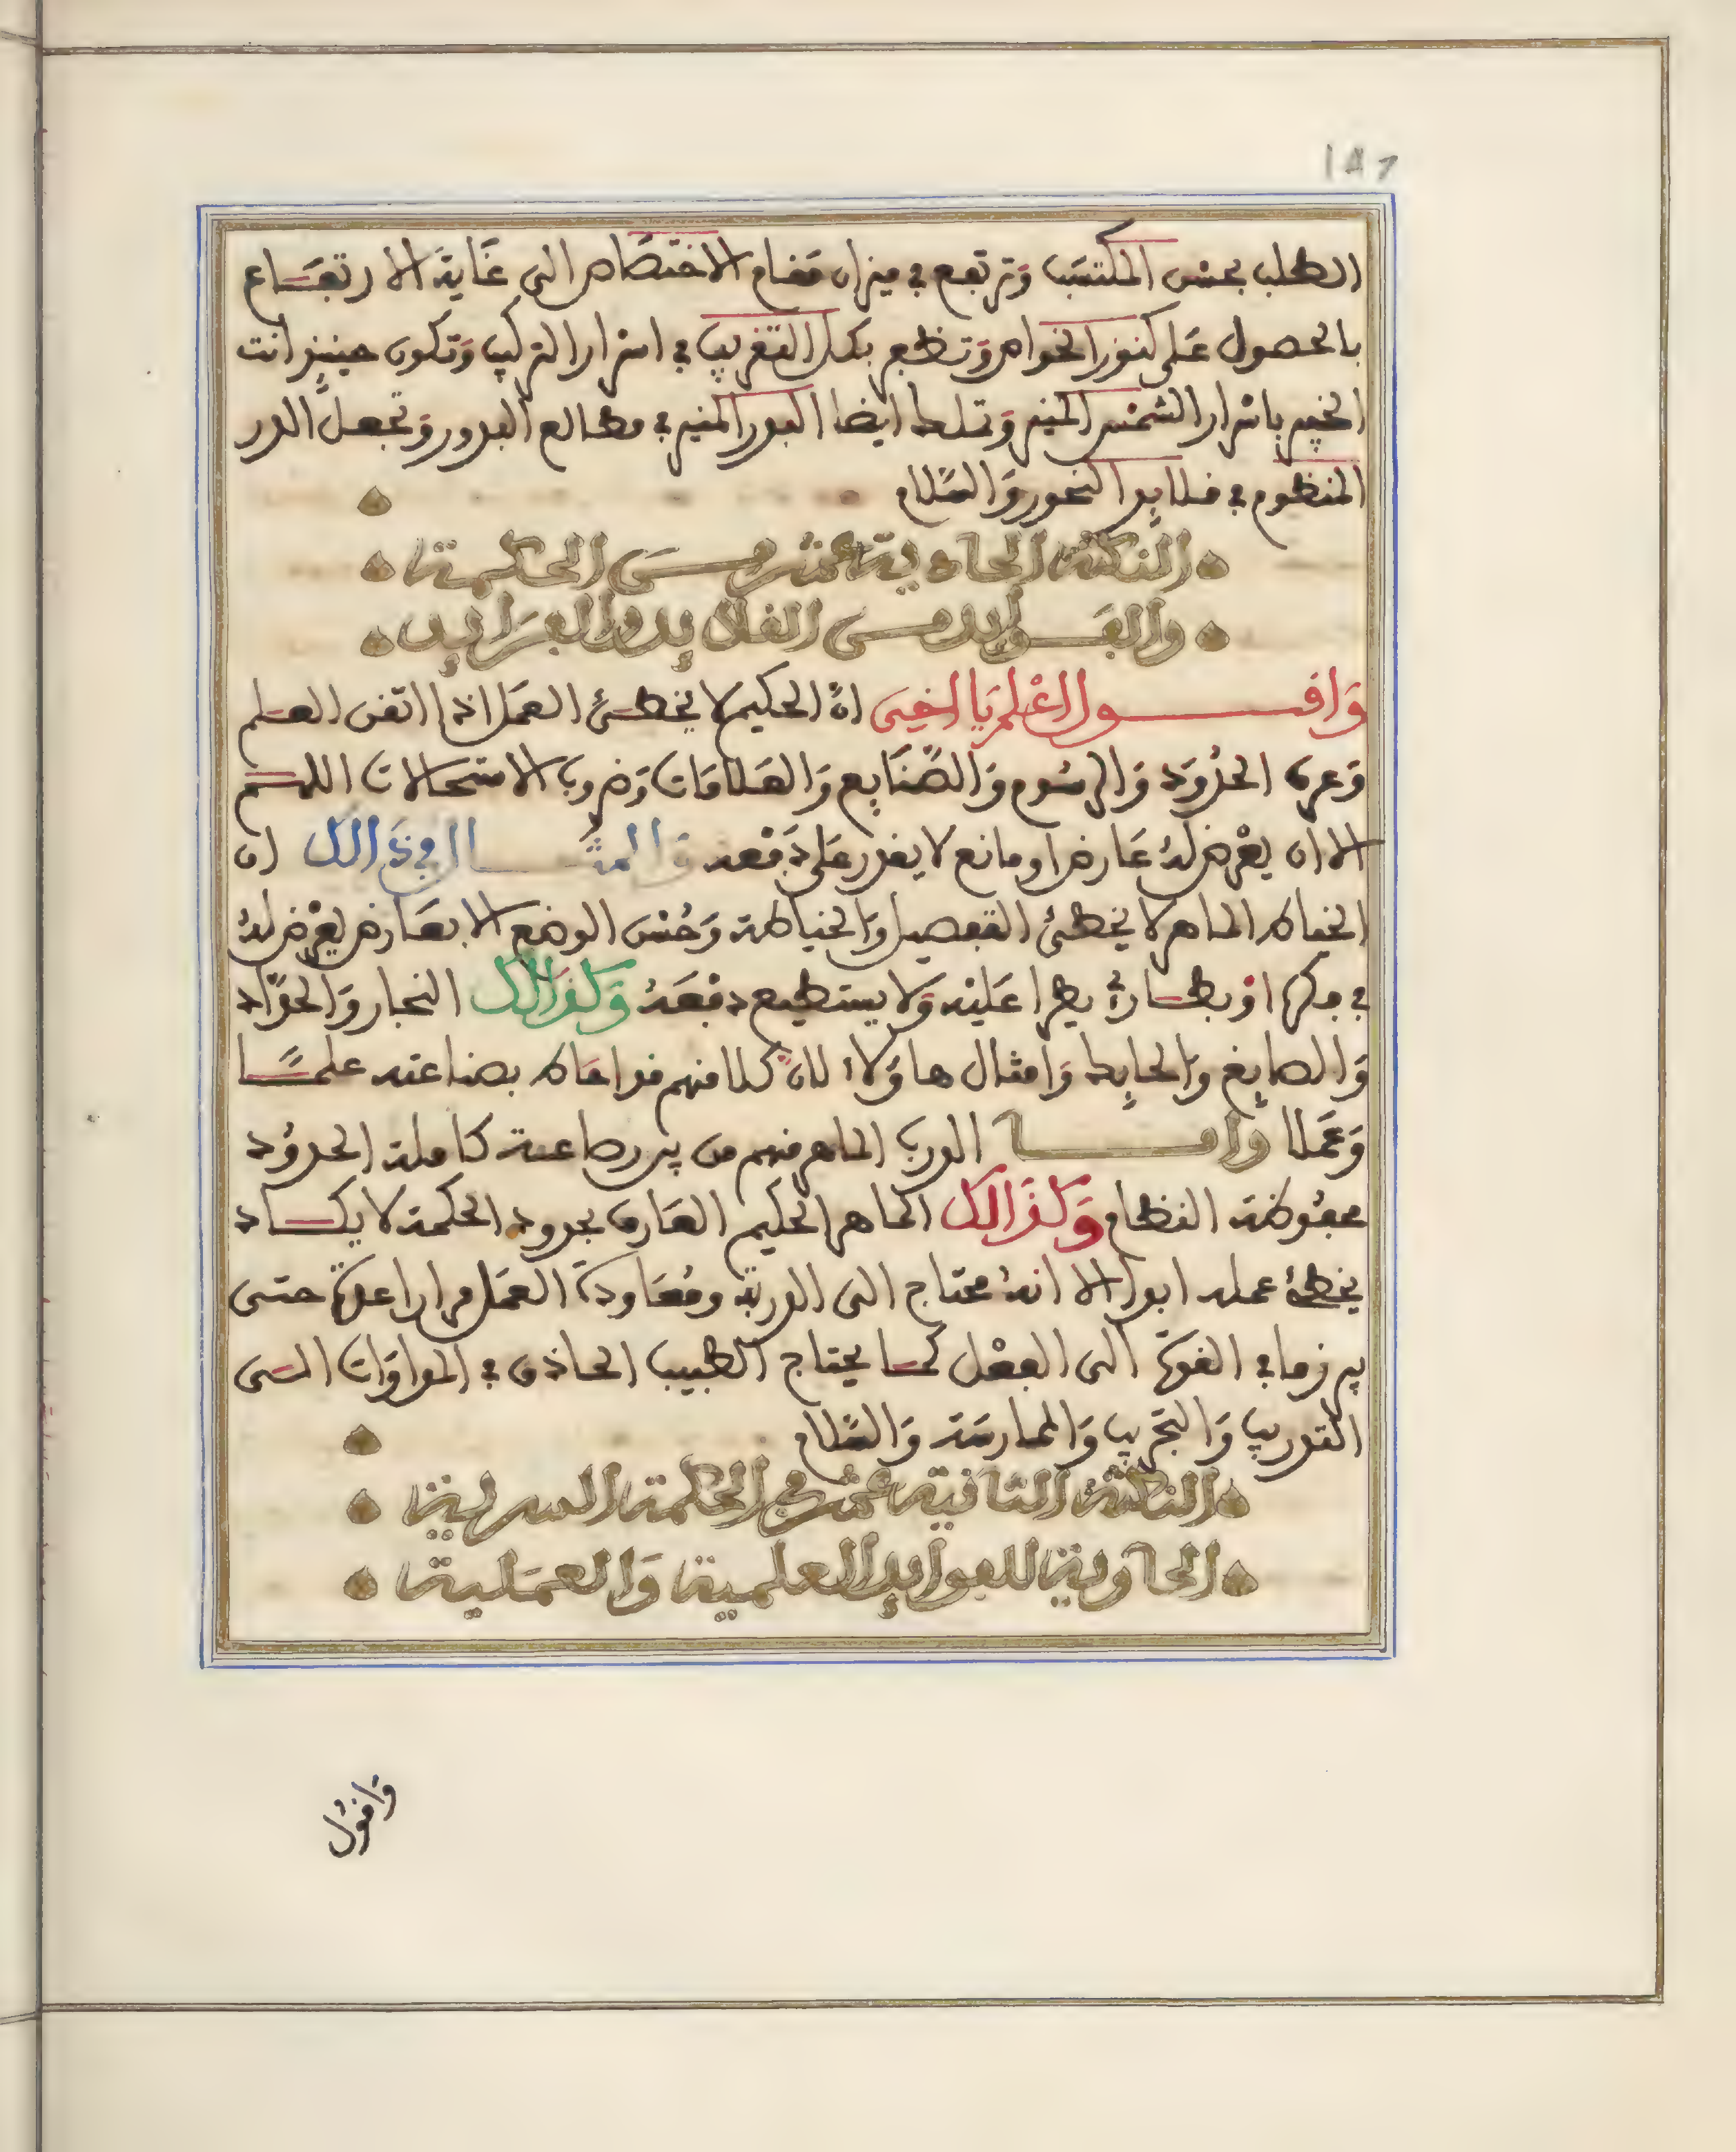 147
الطلب بحسن المكتسب وترتفع في ميزان مقام الاختصاص الى غاية الارتفاع
بالحصول على كنوز الخواص وتظفر بكل التقريب في اسرار التركيب وتكون حينئذ انت
الخبير باسرار الشمس المنير وتملك ايضا البدر المنير في مطالع البدور وتجعل الدر
المنظوم في قلايد النحور والسلام
النكتة الحادية عشر من الحكمة
والفوايد من القلايد والفرايد
واقول اعلم يا اخي ان الحكيم لا يخطئ العمل اذا اتقن العلم
وعرف الحدود والرسوم والصنايع والعلامات وضروب الاستحالات اللهم
الا ان يعرض له عارض او مانع لا يقدر على دفعه والمثال في ذالك ان
الخياط الماهر لا يخطئ التفصيل والخياطة وحسن الوضع الا بعارض يعرض له
في فكره او بطارئ يطرا عليه ولا يستطيع دفعه وكذالك النجار والحداد
والصايغ والحايك وامثال هاولاء لان كلا منهم قد احاط بصناعته علما
وعملا واما الدرب الماهر منهم من يرى صناعته كاملة الحدود
محفوظة النظام وكذالك الماهر الحكيم العارف بحدود الحكمة لا يكاد
يخطئ عمله ابدا الا انه محتاج الى الدربة ومعاودة العمل مرارا عدة حتى
يبرز ما في القوة الى الفعل كما يحتاج الطبيب الحاذق في المداواة الى
التدريب والتجريب والممارسة والسلام
النكتة الثانية عشر في الحكمة السرية
الحاوية للفوايد العلمية والعملية
واقول